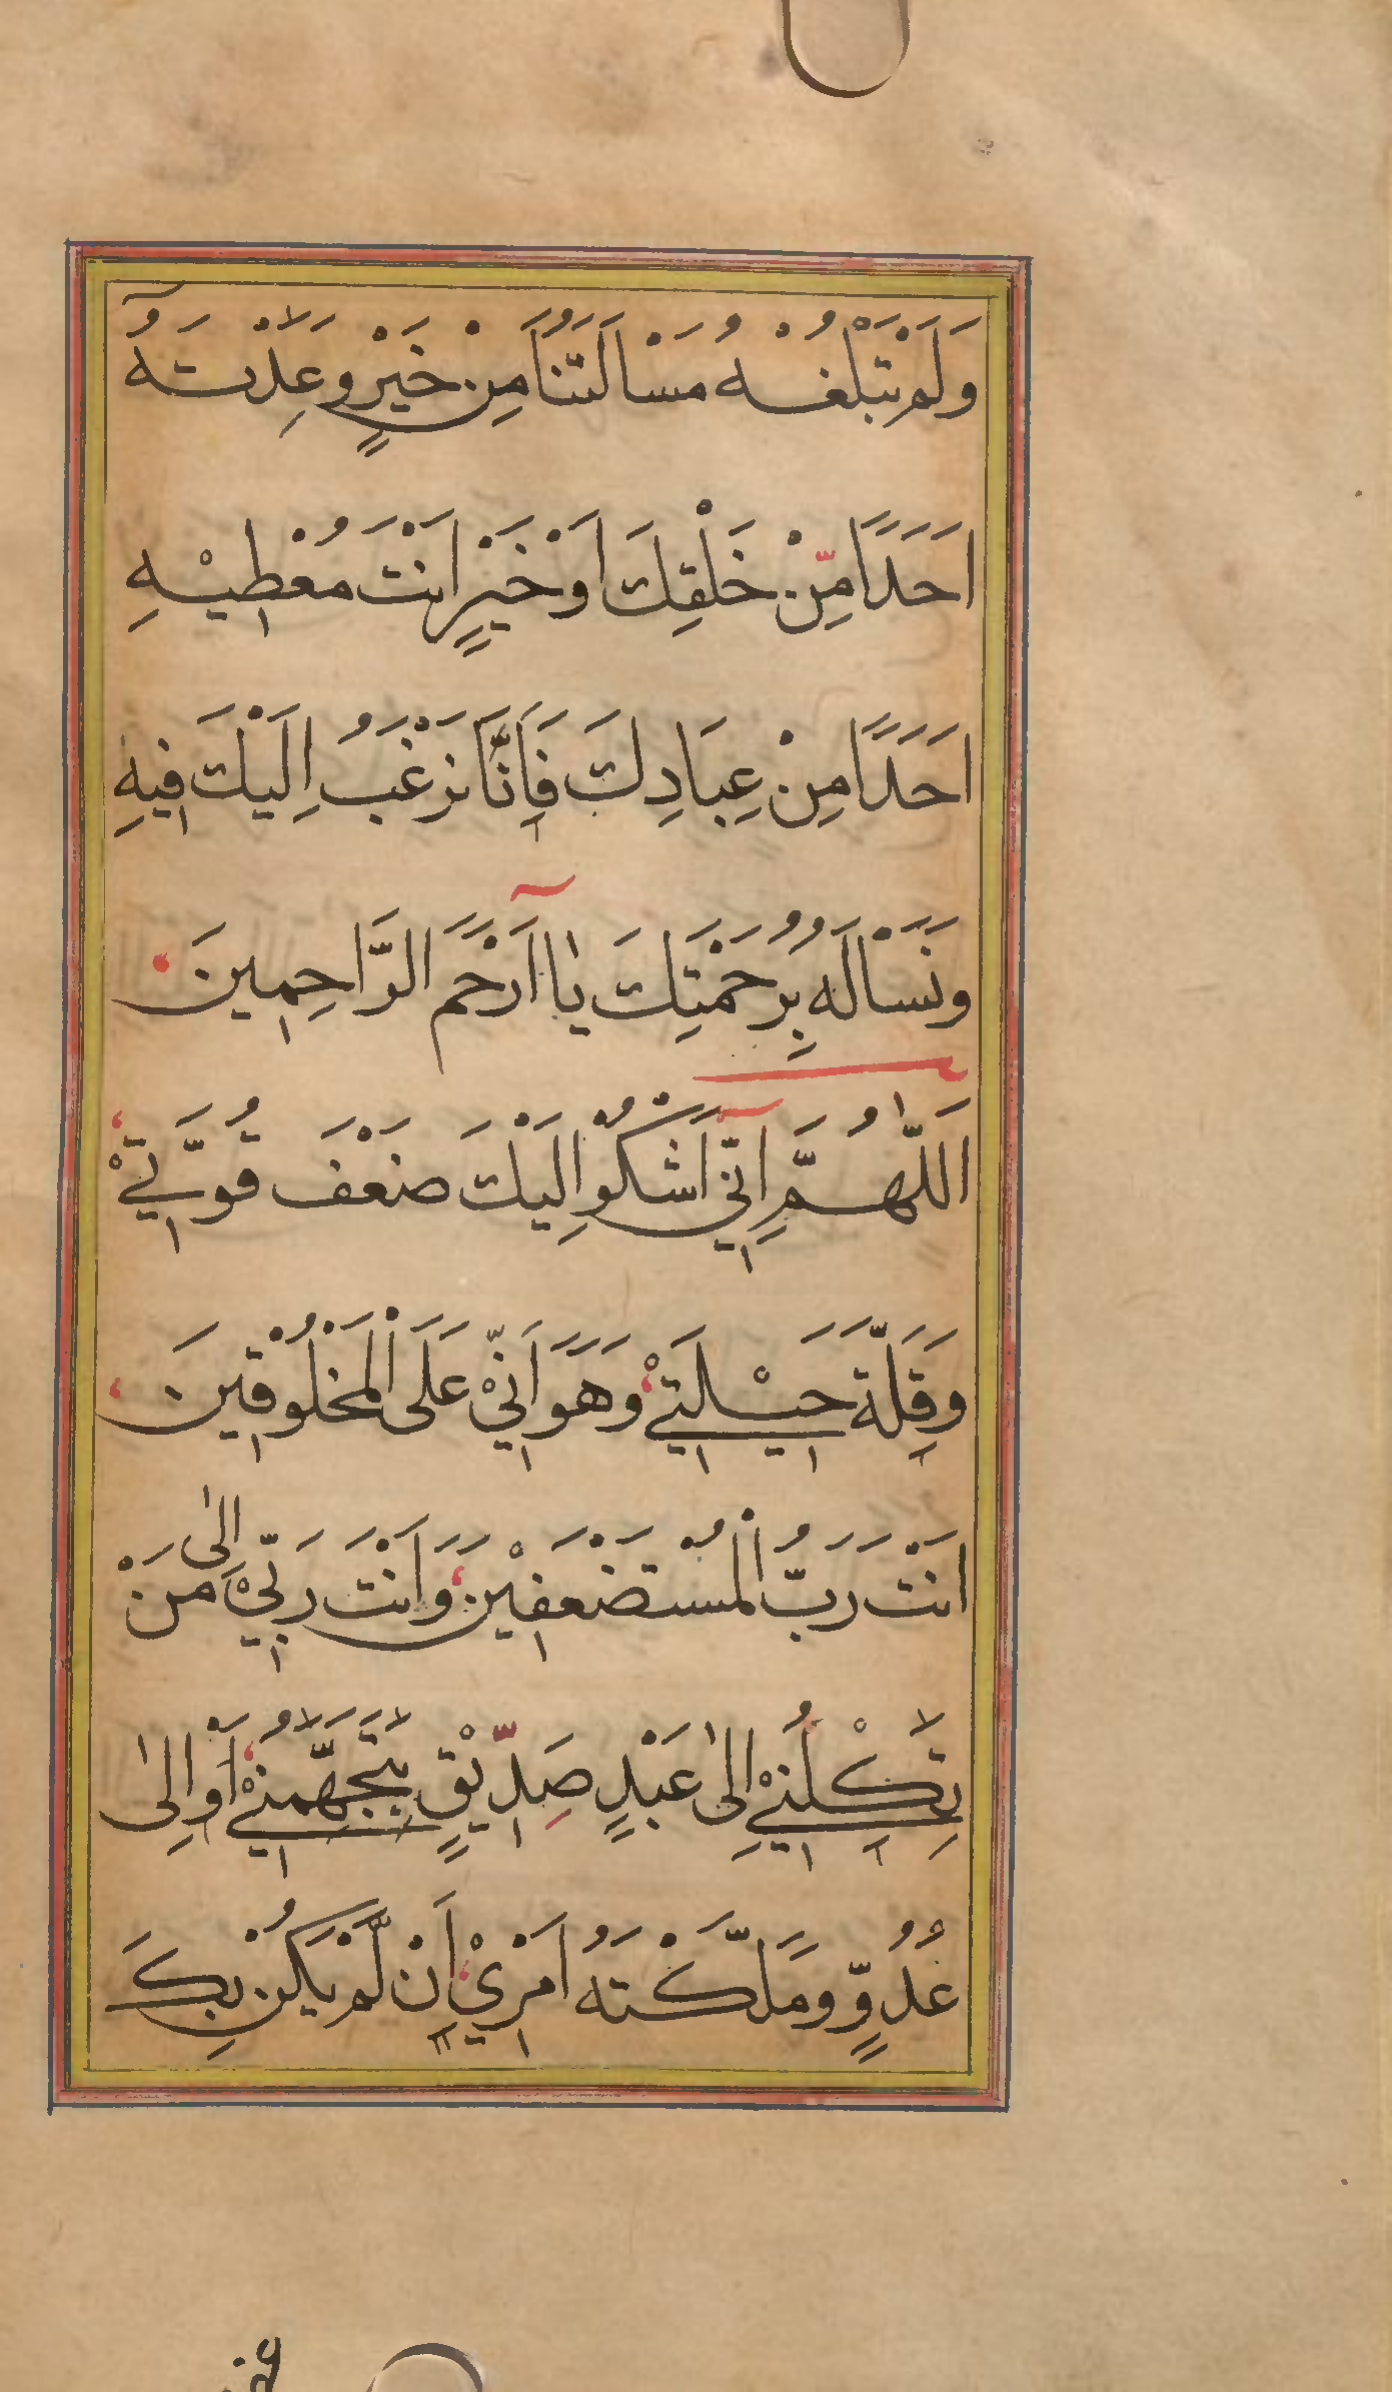 وَلَمْ تَبْلُغْهُ مَسْأَلَتُنَا مِنْ خَيْرٍ وَعَدْتَهُ
اَحَدًا مِّنْ خَلْقِكَ اَوْ خَيْرٍ اَنْتَ مُعْطِيْهِ
اَحَدًا مِنْ عِبَادِكَ فَاِنَّا نَرْغَبُ اِلَيْكَ فِيهِ
وَنَسْأَلُهُ بِرَحْمَتِكَ يَا اَرْحَمَ الرَّاحِمِينَ
اَللّٰهُمَّ اِنِّي اَشْكُوْ اِلَيْكَ ضَعْفَ قُوَّتِيْ
وَقِلَّةَ حِيْلَتِيْ وَهَوَانِيْ عَلَى الْمَخْلُوْقِينَ
اَنْتَ رَبُّ الْمُسْتَضْعَفِيْنَ وَاَنْتَ رَبِّيْ اِلٰى مَنْ
تَكِلُنِيْ اِلٰى عَبْدٍ صِدِّيْقٍ يَتَجَهَّمُنِيْ اَوْ اِلٰى
عَدُوٍّ وَمَلَّكْتَهُ اَمْرِيْ اِنْ لَّمْ يَكُنْ بِكَ